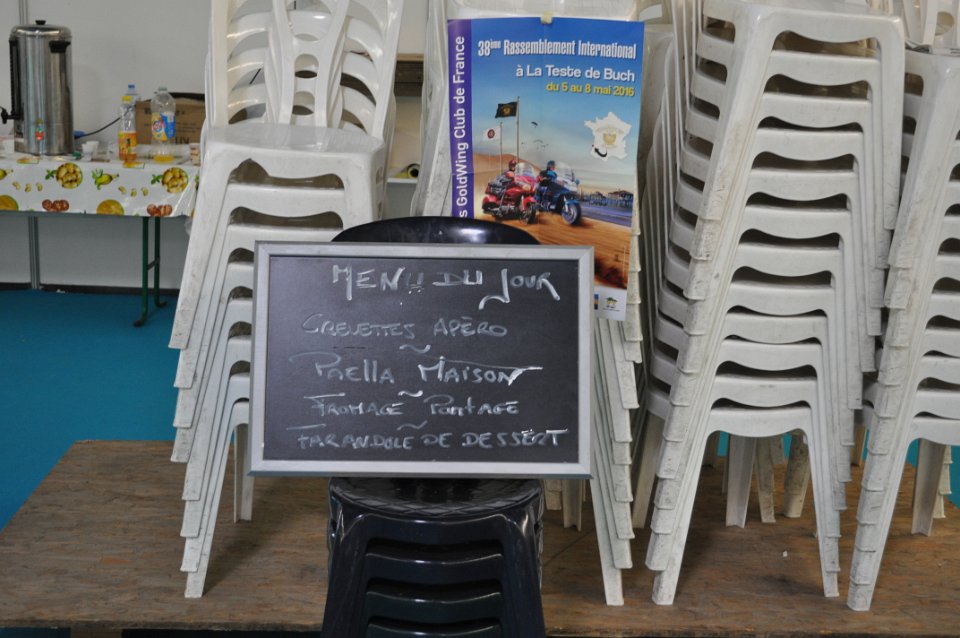 38ème Rassemblement International
à La Teste de Buch
du 5 au 8 mai 2016
GoldWing Club de France
MENU DU JOUR
CREVETTES APÉRO
~
PAELLA MAISON
~
FROMAGE PARTAGE
~
FARANDOLE DE DESSERT